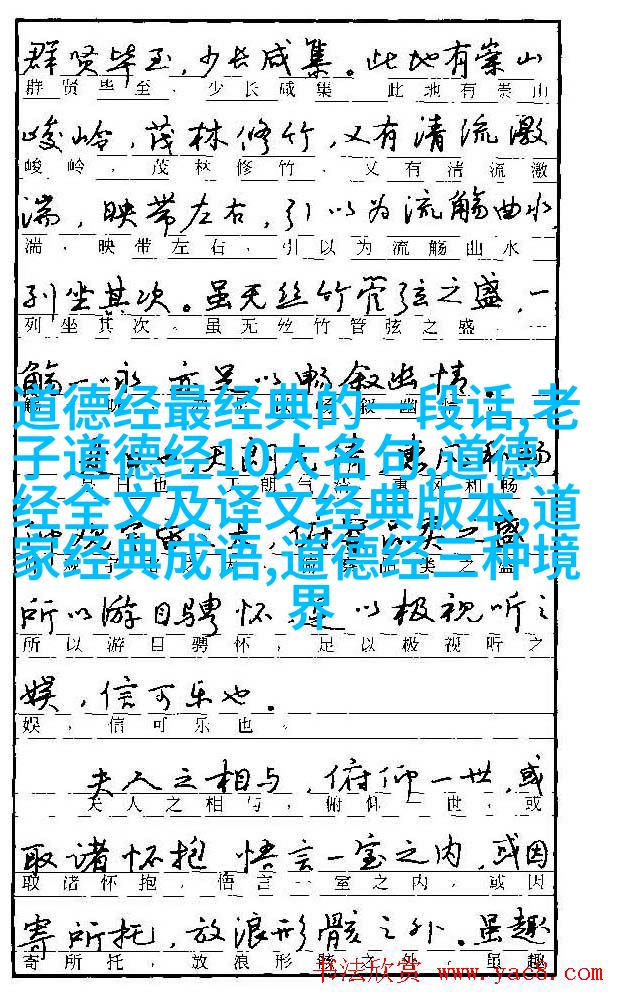 群贤毕至,少长咸集。此地有崇山
群贤毕至、少长咸集 此地有崇山
峻岭,茂林修竹,又有清流激
峻岭,茂林修竹、又有清流激
湍,映带左右,引以为流觞曲水
湍、映带左右、引以为流觞曲水
列坐其次。虽无丝竹管弦之盛,一
列坐其次。虽无丝竹管弦之盛
觞一咏,亦足以畅叙幽情。
道德经最经典的一段话,老
子道德经10大名句,道德
经全文及译文经典版本,道
家经典成语,道德经三种境
界
所以游目骋怀,足以极视听之
所以游目骋怀,足以极视听之
娱,信可乐也。
娱,信可乐也。
夫人之相与,俯仰一世,或
夫人之相与,俯仰一世,或
取诸怀抱 悟言一室之内,或因
取诸怀抱,悟言一室之内,或因
寄所托,放浪形骸之外。虽趣
寄所托,放浪形骸之外。虽趣
书法欣赏 www.yac8.com